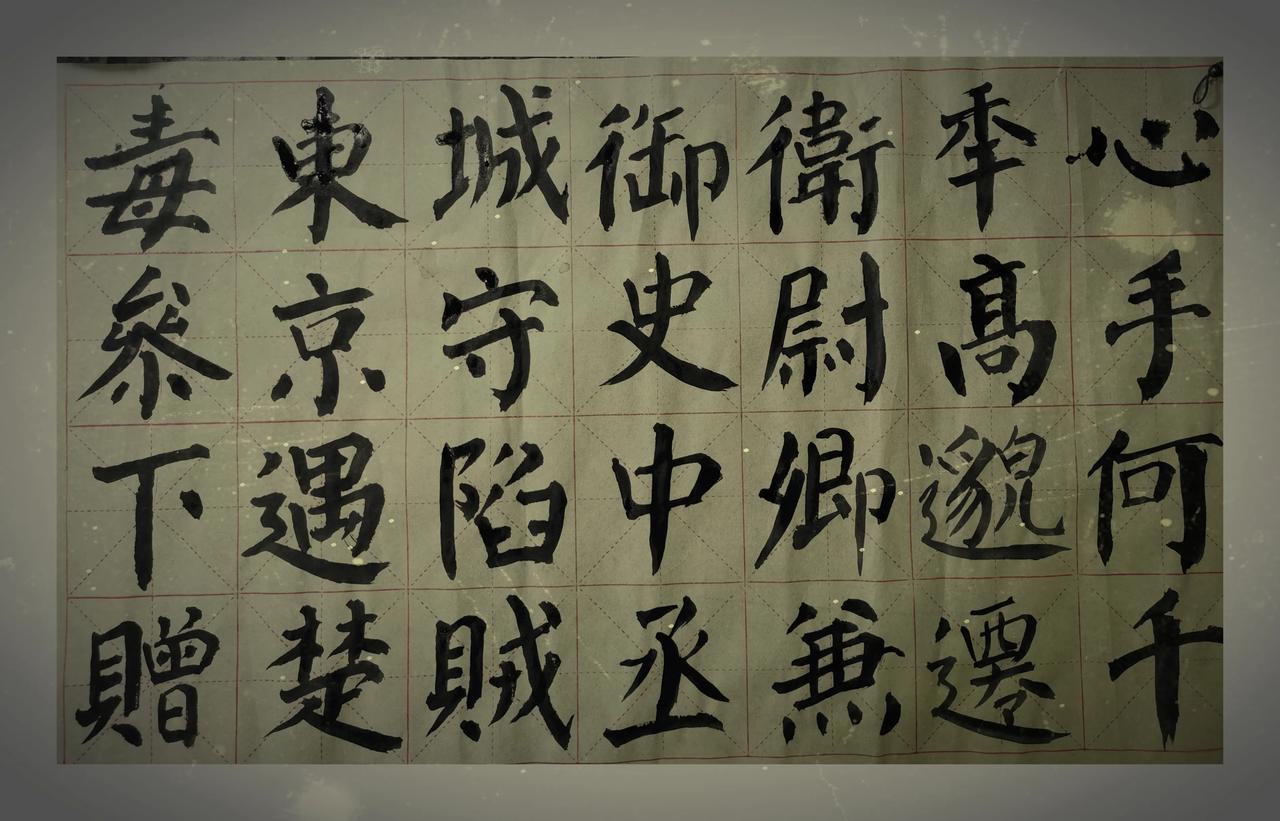 心手何千
秊髙邈遷
衛尉卿兼
御史中丞
城守陷賊
東京遇楚
毒叅下贈